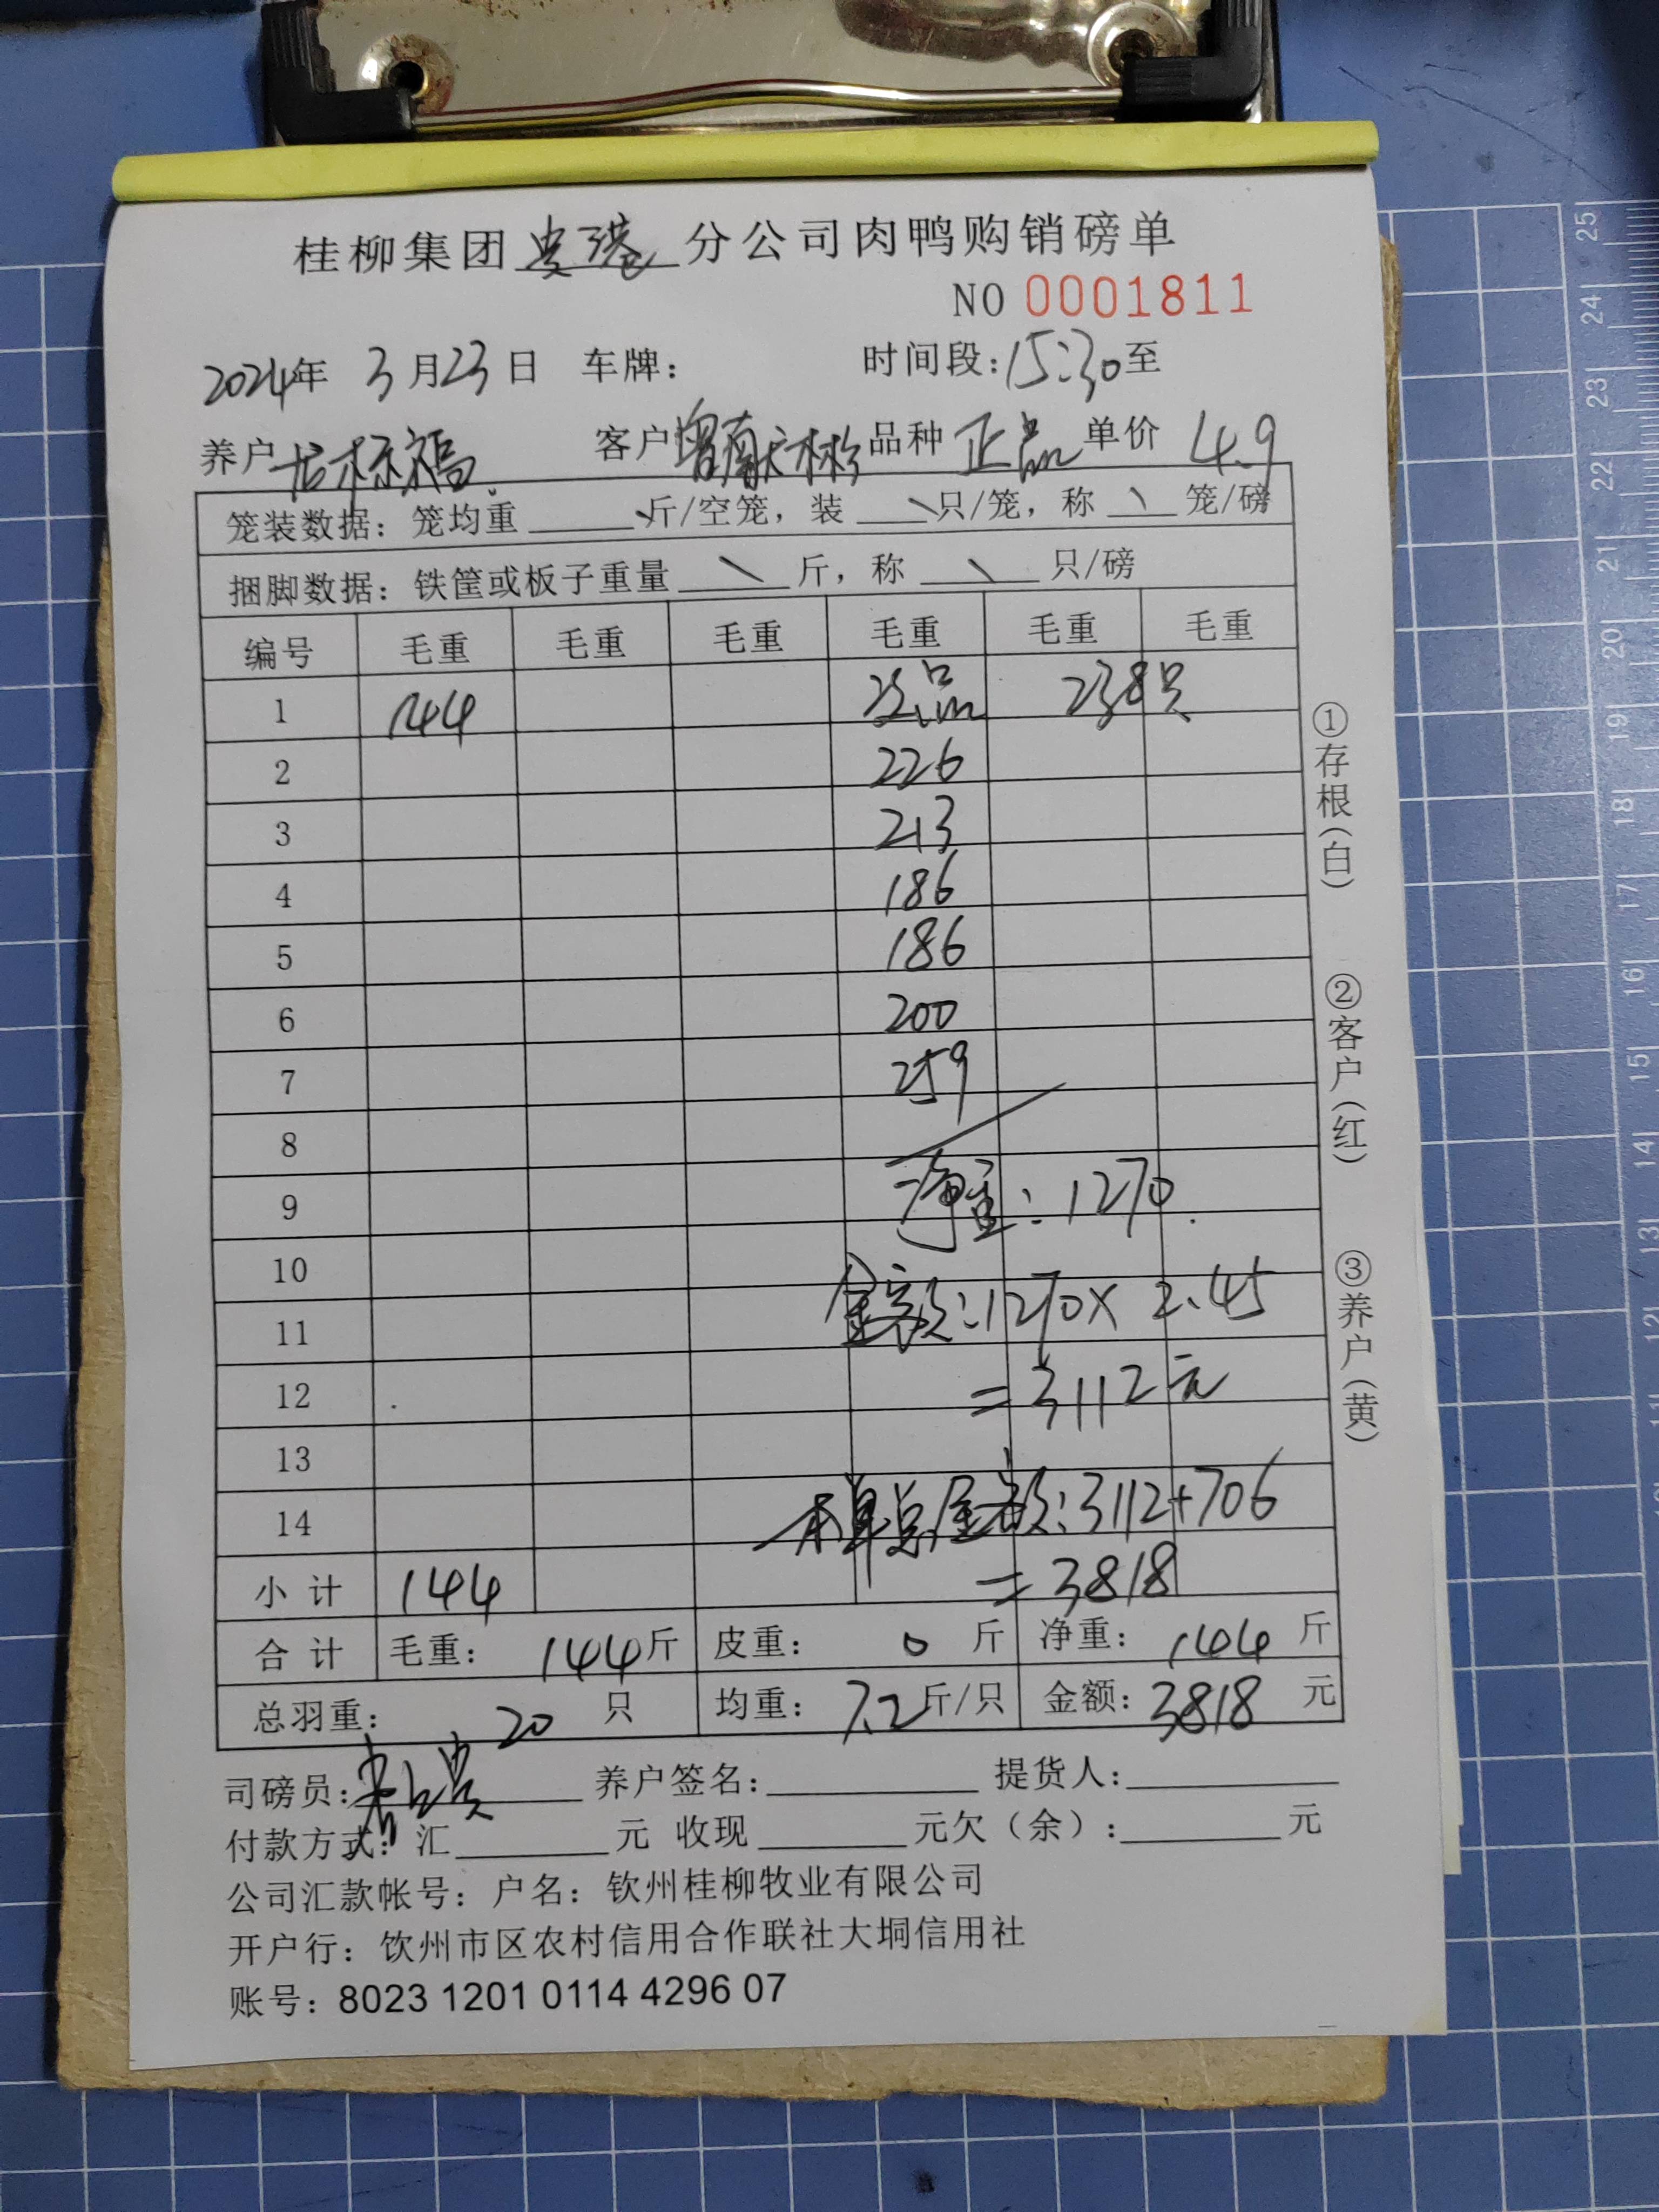 桂柳集团贵港分公司肉鸭购销磅单
NO 0001811
2024年 3月23日 车牌： 时间段:15:30至
养户 标福 客户 曾献彬 品种 正品 单价 4.9
笼装数据：笼均重 \ 斤/空笼，装 \ 只/笼，称 \ 笼/磅
捆脚数据：铁筐或板子重量 \ 斤，称 \ 只/磅
编号 毛重 毛重 毛重 毛重 毛重 毛重
1 144 次品 238只
2 226
3 213
4 186
5 186
6 200
7 259
8
9 净重：1270.
10
11 金额：1270X 2.45
12 =3112元
13
14 本单总金额：3112+706
小 计 144 =3818
合 计 毛重： 144斤 皮重： 0 斤 净重： 144 斤
总羽重： 20 只 均重：7.2斤/只 金额：3818 元
司磅员： 养户签名： 提货人：
付款方式：汇 元 收现 元欠（余）： 元
公司汇款帐号：户名：钦州桂柳牧业有限公司
开户行：饮州市区农村信用合作联社大垌信用社
账号：8023 1201 0114 4296 07
①存根（白）
②客户（红）
③养户（黄）
25
24
23
22
21
20
19
18
17
16
15
14
13
12
11